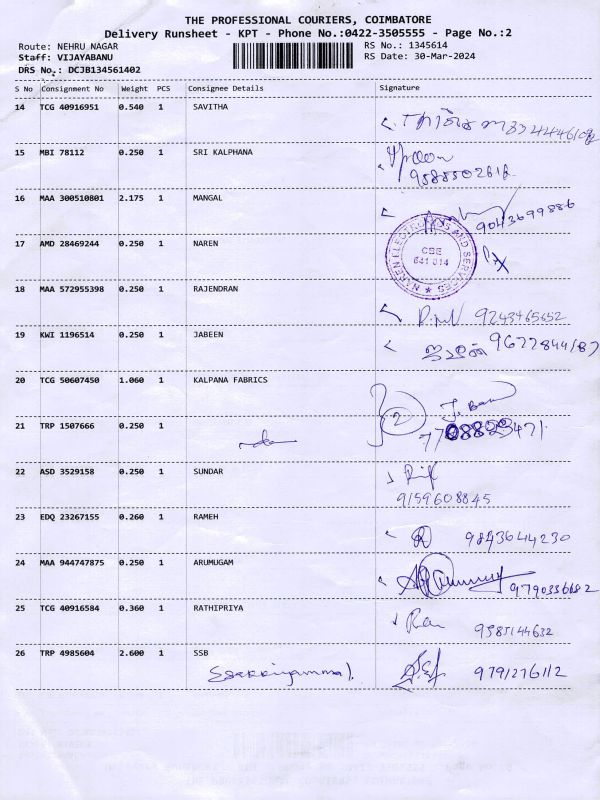 THE PROFESSIONAL COURIERS, COIMBATORE
Delivery Runsheet - KPT - Phone No.:0422-3505555 - Page No.:2
Route: NEHRU NAGAR
RS No.: 1345614
Staff: VIJAYABANU
RS Date: 30-Mar-2024
DRS No.: DCJB134561402
S No Consignment No Weight PCS Consignee Details Signature
14 TCG 40916951 0.540 1 SAVITHA
15 MBI 78112 0.250 1 SRI KALPHANA
16 MAA 300510801 2.175 1 MANGAL 9043699886
17 AMD 28469244 0.250 1 NAREN
NAREN ELECTRONICS AND SERVICES
CBE
641 014
18 MAA 572955398 0.250 1 RAJENDRAN
9243465652
19 KWI 1196514 0.250 1 JABEEN
20 TCG 50607450 1.060 1 KALPANA FABRICS
2
21 TRP 1507666 0.250 1
22 ASD 3529158 0.250 1 SUNDAR
9159608845
23 EDQ 23267155 0.260 1 RAMEH 9843644230
24 MAA 944747875 0.250 1 ARUMUGAM
25 TCG 40916584 0.360 1 RATHIPRIYA
9585144632
26 TRP 4985604 2.600 1 SSB 9791276112